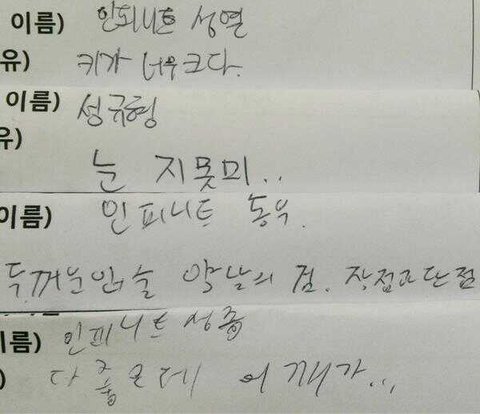 이름) 인피니트 성열
유) 키가 너무 크다.
이름) 성규형
유) 눈 지못미..
이름) 인피니트 동우.
두꺼운 입술 약남의 점. 장점과 단점
이름) 인피니트 성종
) 다 좋은데 어깨가...